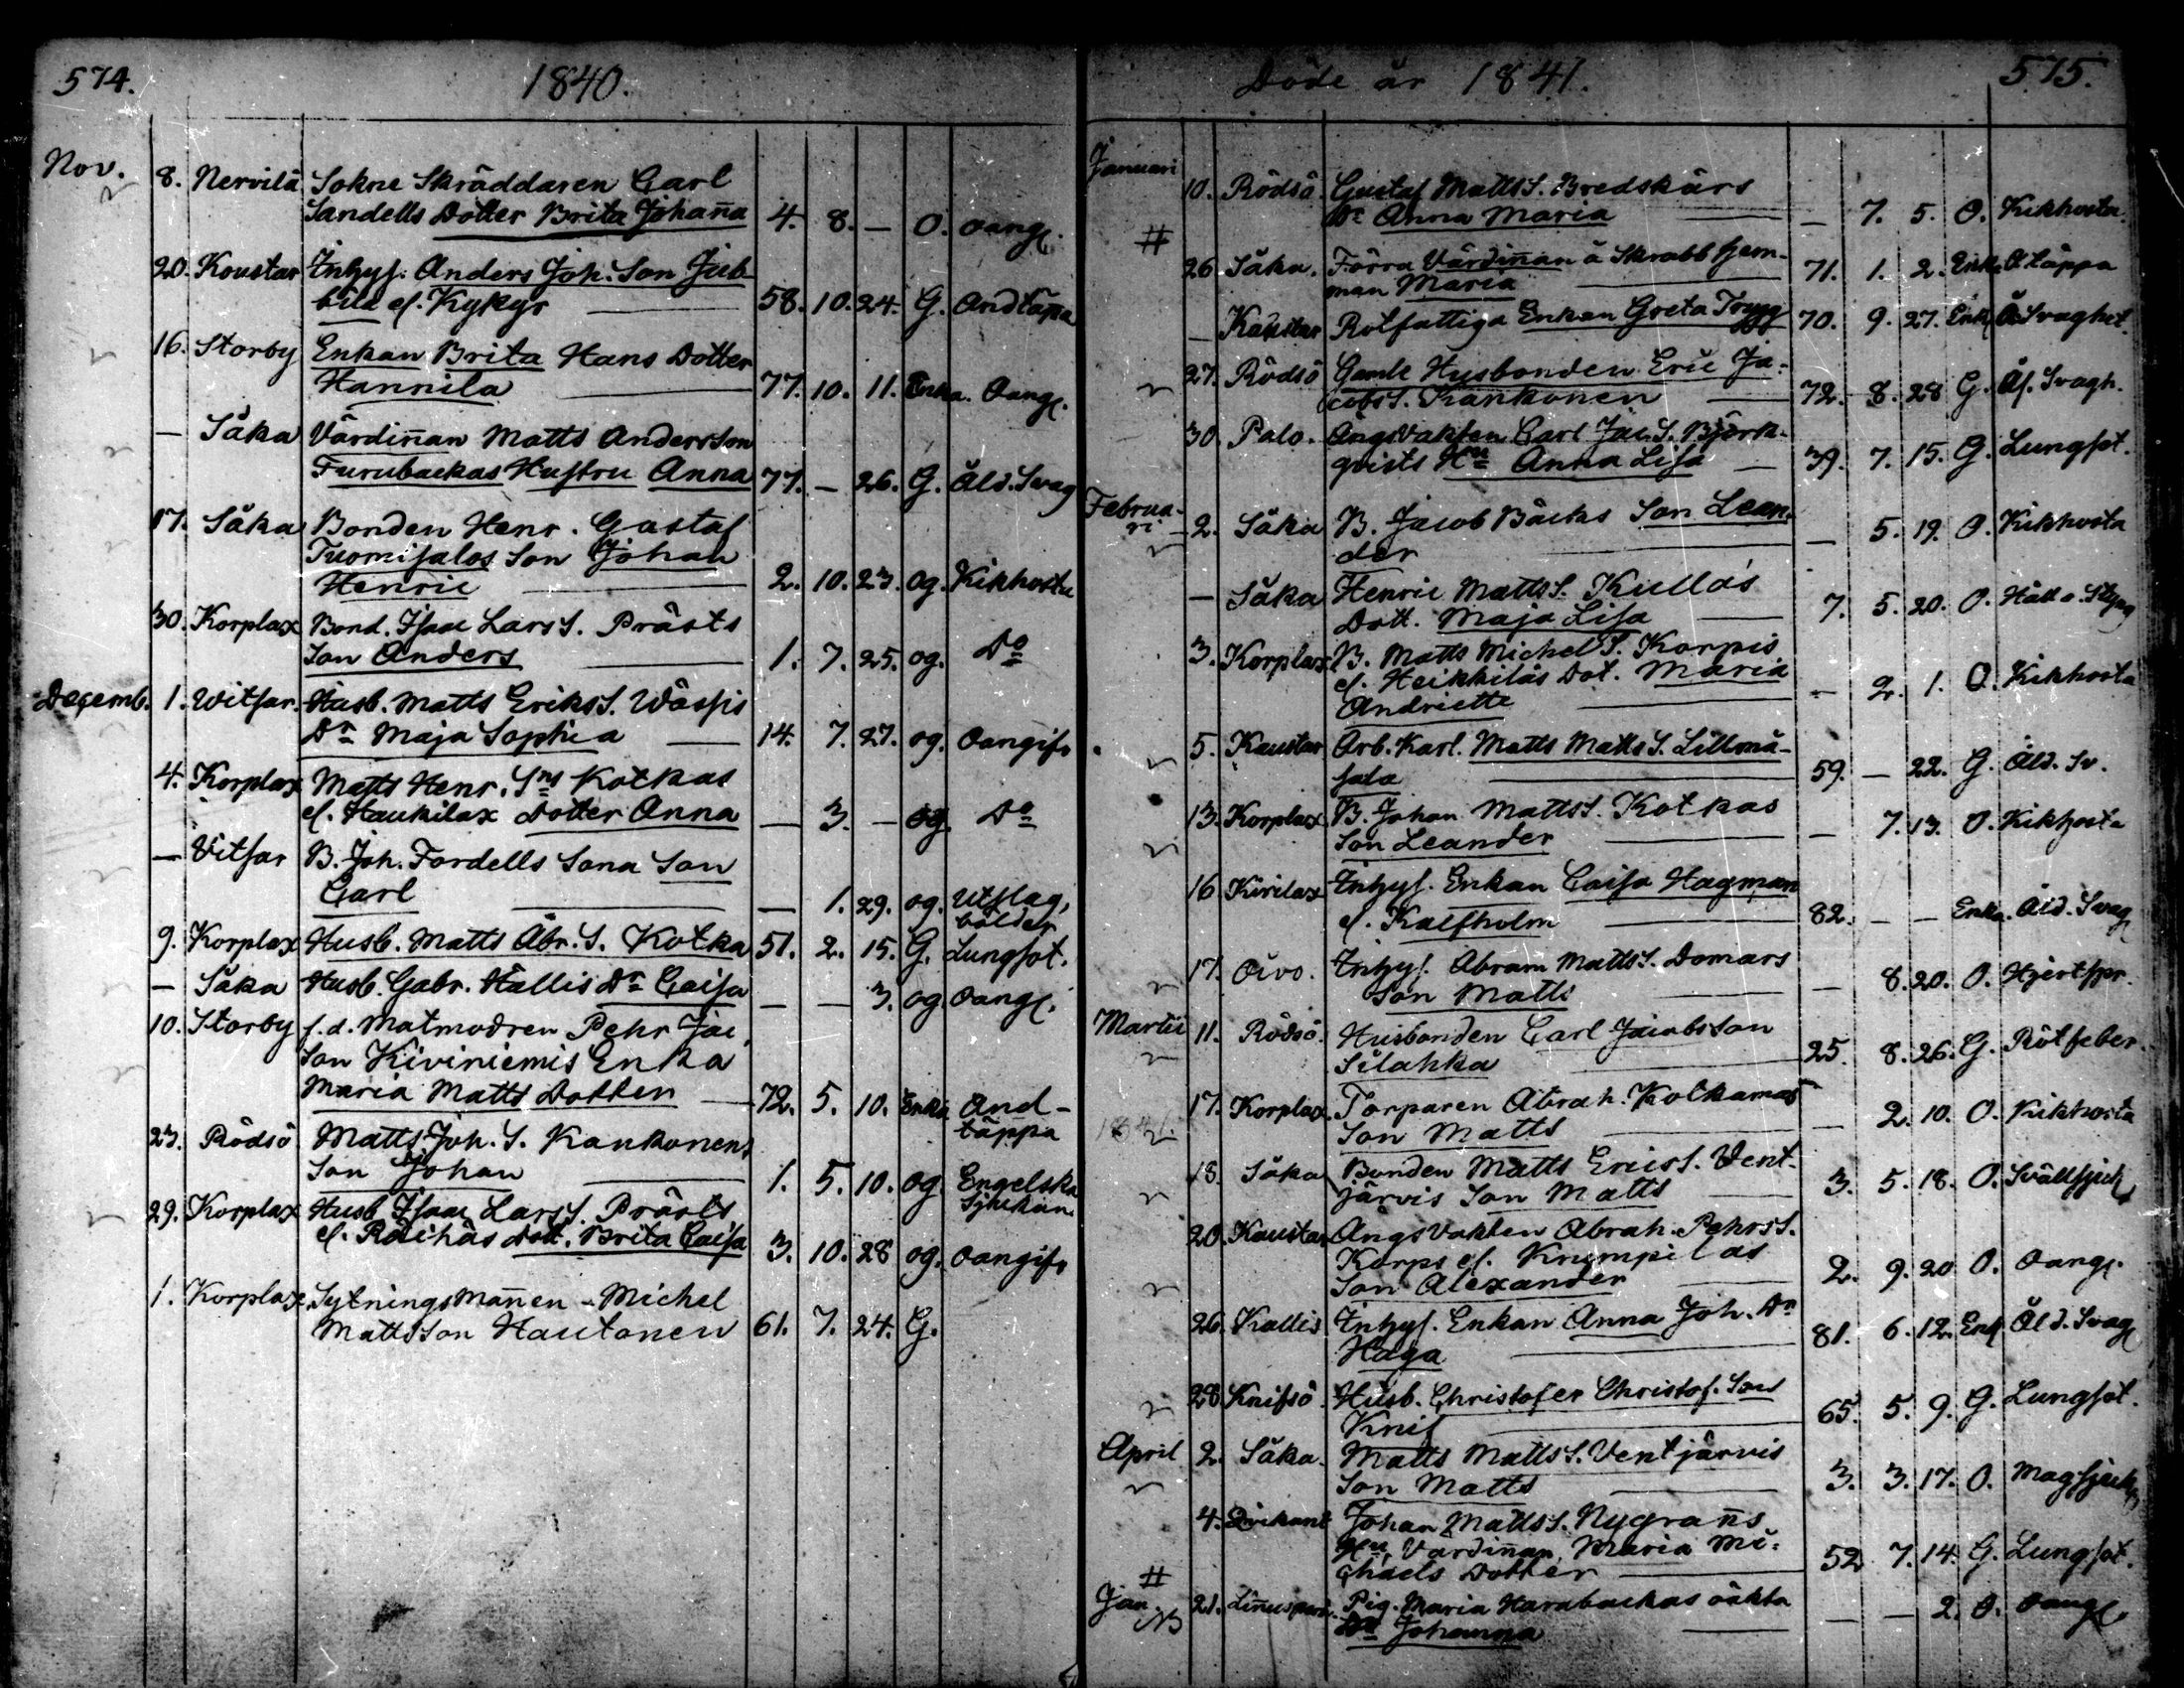 574. 1840.
Nov. 8. Nervilä Sokne Skräddaren Carl
Sandells Dotter Brita Johana 4. 8. — O. oangf.
20. Koustar Inhys. Anders Joh. Son Jub-
bila el. Kykyr 58. 10. 24. G. Andtäpa
16. Storby Enkan Brita Hans Dotter
Hannila 77. 10. 11. Enka. Oangf.
— Såka Värdinan Matts Andersson
Furubackas Hustru Anna 77. — 26. G. Åld. Svag
17. Såka Bonden Henr. Gustaf
Tuomisalos Son Johan
Henric 2. 10. 23. og. Kikhosta
30. Korplax Bond. Isaac Lars S. Prästs
Son Anders 1. 7. 25. og. Do
Decemb. 1. Witsar. Husb. Matts Eriks S. Wässis
Dr Maja Sophia 14. 7. 27. og. Oangifv
4. Korplax Matts Henr. Sns Kotkas
el. Haukilax Dotter Anna — 3. — og. Do
— Vitsar B. Joh. Fordells Sona Son
Carl — 1. 29. og. Utslag,
bölder
9. Korplax Husb. Matts Abr. S. Kotka 51. 2. 15. G. Lungsot.
— Såka Husb. Gabr. Hällis Dr Caisa — — 3. og. oangf.
10. Storby f.d. Matmodren Pehr Jac.
Son Kiviniemis Enka
Maria Matts Dotter 72. 5. 10. Enka And-
täppa
23. Rödsö Matts Joh. S. Kankonens
Son Johan 1. 5. 10. og. Engelska
Sjukan.
29. Korplax Husb. Isaac Lars S. Prästs
el. Räihäs Dott. Brita Caisa 3. 10. 28 og. oangifv
1. Korplax Sytningsmanen - Michel
Mattsson Hautonen 61. 7. 24. G.
Döde år 1841. 575.
Januari 10. Rödsö Gustaf Matts S. Bredskärs
Dr Anna Maria — 7. 5. O. Kikhosta.
# 26 Såka. Förra Värdinan å Skrabb hem-
man Maria 71. 1. 2. Enk. A.täppa
— Kaustar Rotfattiga Enkan Greta Trygg 70. 9. 27. Enk. Å. Svaghet.
27. Rödsö Gamle Husbonden Eric Ja-
cobs S. Kankonen 72. 8. 28 G. Ål. Svagh.
30. Palo. Ängsvakten Carl Jac. S. Björk-
qvists Hu Anna Lisa — 39. 7. 15. G. Lungsot.
Februa-
ri 2. Såka B. Jacob Bäcks Son Lean-
der — 5. 19. O. Kikhosta
— Såka Henric Matts S. Kullas
Dott. Maja Lisa 7. 5. 20. O. Håll o. Styng
3. Korplax B. Matts Michel S. Korpis
el. Heikkiläs Dot. Maria
Andriette — 2. 1. O. Kikhosta
5. Kaustar Arb. Karl. Matts Matts S. Lillmå-
sala 59. — 22. G. Åld. Sv.
13. Korplax B. Johan Matts S. Kotkas
Son Leander — 7. 13. O. Kikhosta
16 Kirilax Inhys. Enkan Caisa Hagman
el. Kalfholm 82. — — Enka. Åld. Svag
17. Öivo. Inhys. Abram Matts S. Domars
Son Matts — 8. 20. O. Hjertspr.
Martii 11. Rödsö. Husbonden Carl Jacobsson
Silahka 25. 8. 26. G. Rötfeber.
1841. 17. Korplax. Torparen Abrah. Kotkamas
Son Matts — 2. 10. O. Kikhosta
18. Såka Bonden Matts Erics S. Vent-
järvis Son Matts 3. 5. 18. O. Svällsjuk
20. Kaustar Ängsvakten Abrah. Pehrs S.
Korps el. Krumpilas
Son Alexander 2. 9. 20 O. Oangf.
26. Kallis Inhys. Enkan Anna Joh. Dr
Haga 81. 6. 12. Enk Åld. Svag
28 Knifsö. Husb. Christofer Christof. Son
Knif 65. 5. 9. G. Lungsot.
April 2. Såka. Matts Matts S. Ventjärvis
Son Matts 3. 3. 17. O. Magsjuk
4. Qvikant Johan Matts S. Nygrans
Hu, Värdinan, Maria Mi-
chaels Dotter 52 7. 14. G. Lungsot.
#
Jan. NB 21. Linusperä. Pig. Maria Harabackas oäkta
Dr Johanna — — 2. O. Oangf.